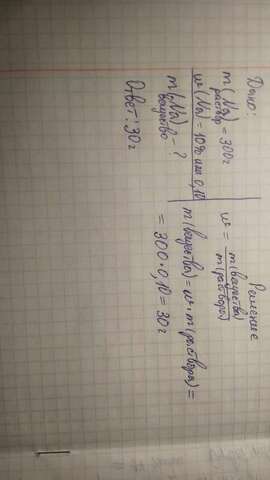 Дано:
m(Na) = 300г
раствор
w(Na) = 10% или 0,10
m(Na) - ?
вещество
Ответ: 30г
Решение
w = m(вещества)
m(раствора)
m(вещества) = w · m(раствора) =
= 300 · 0,10 = 30г